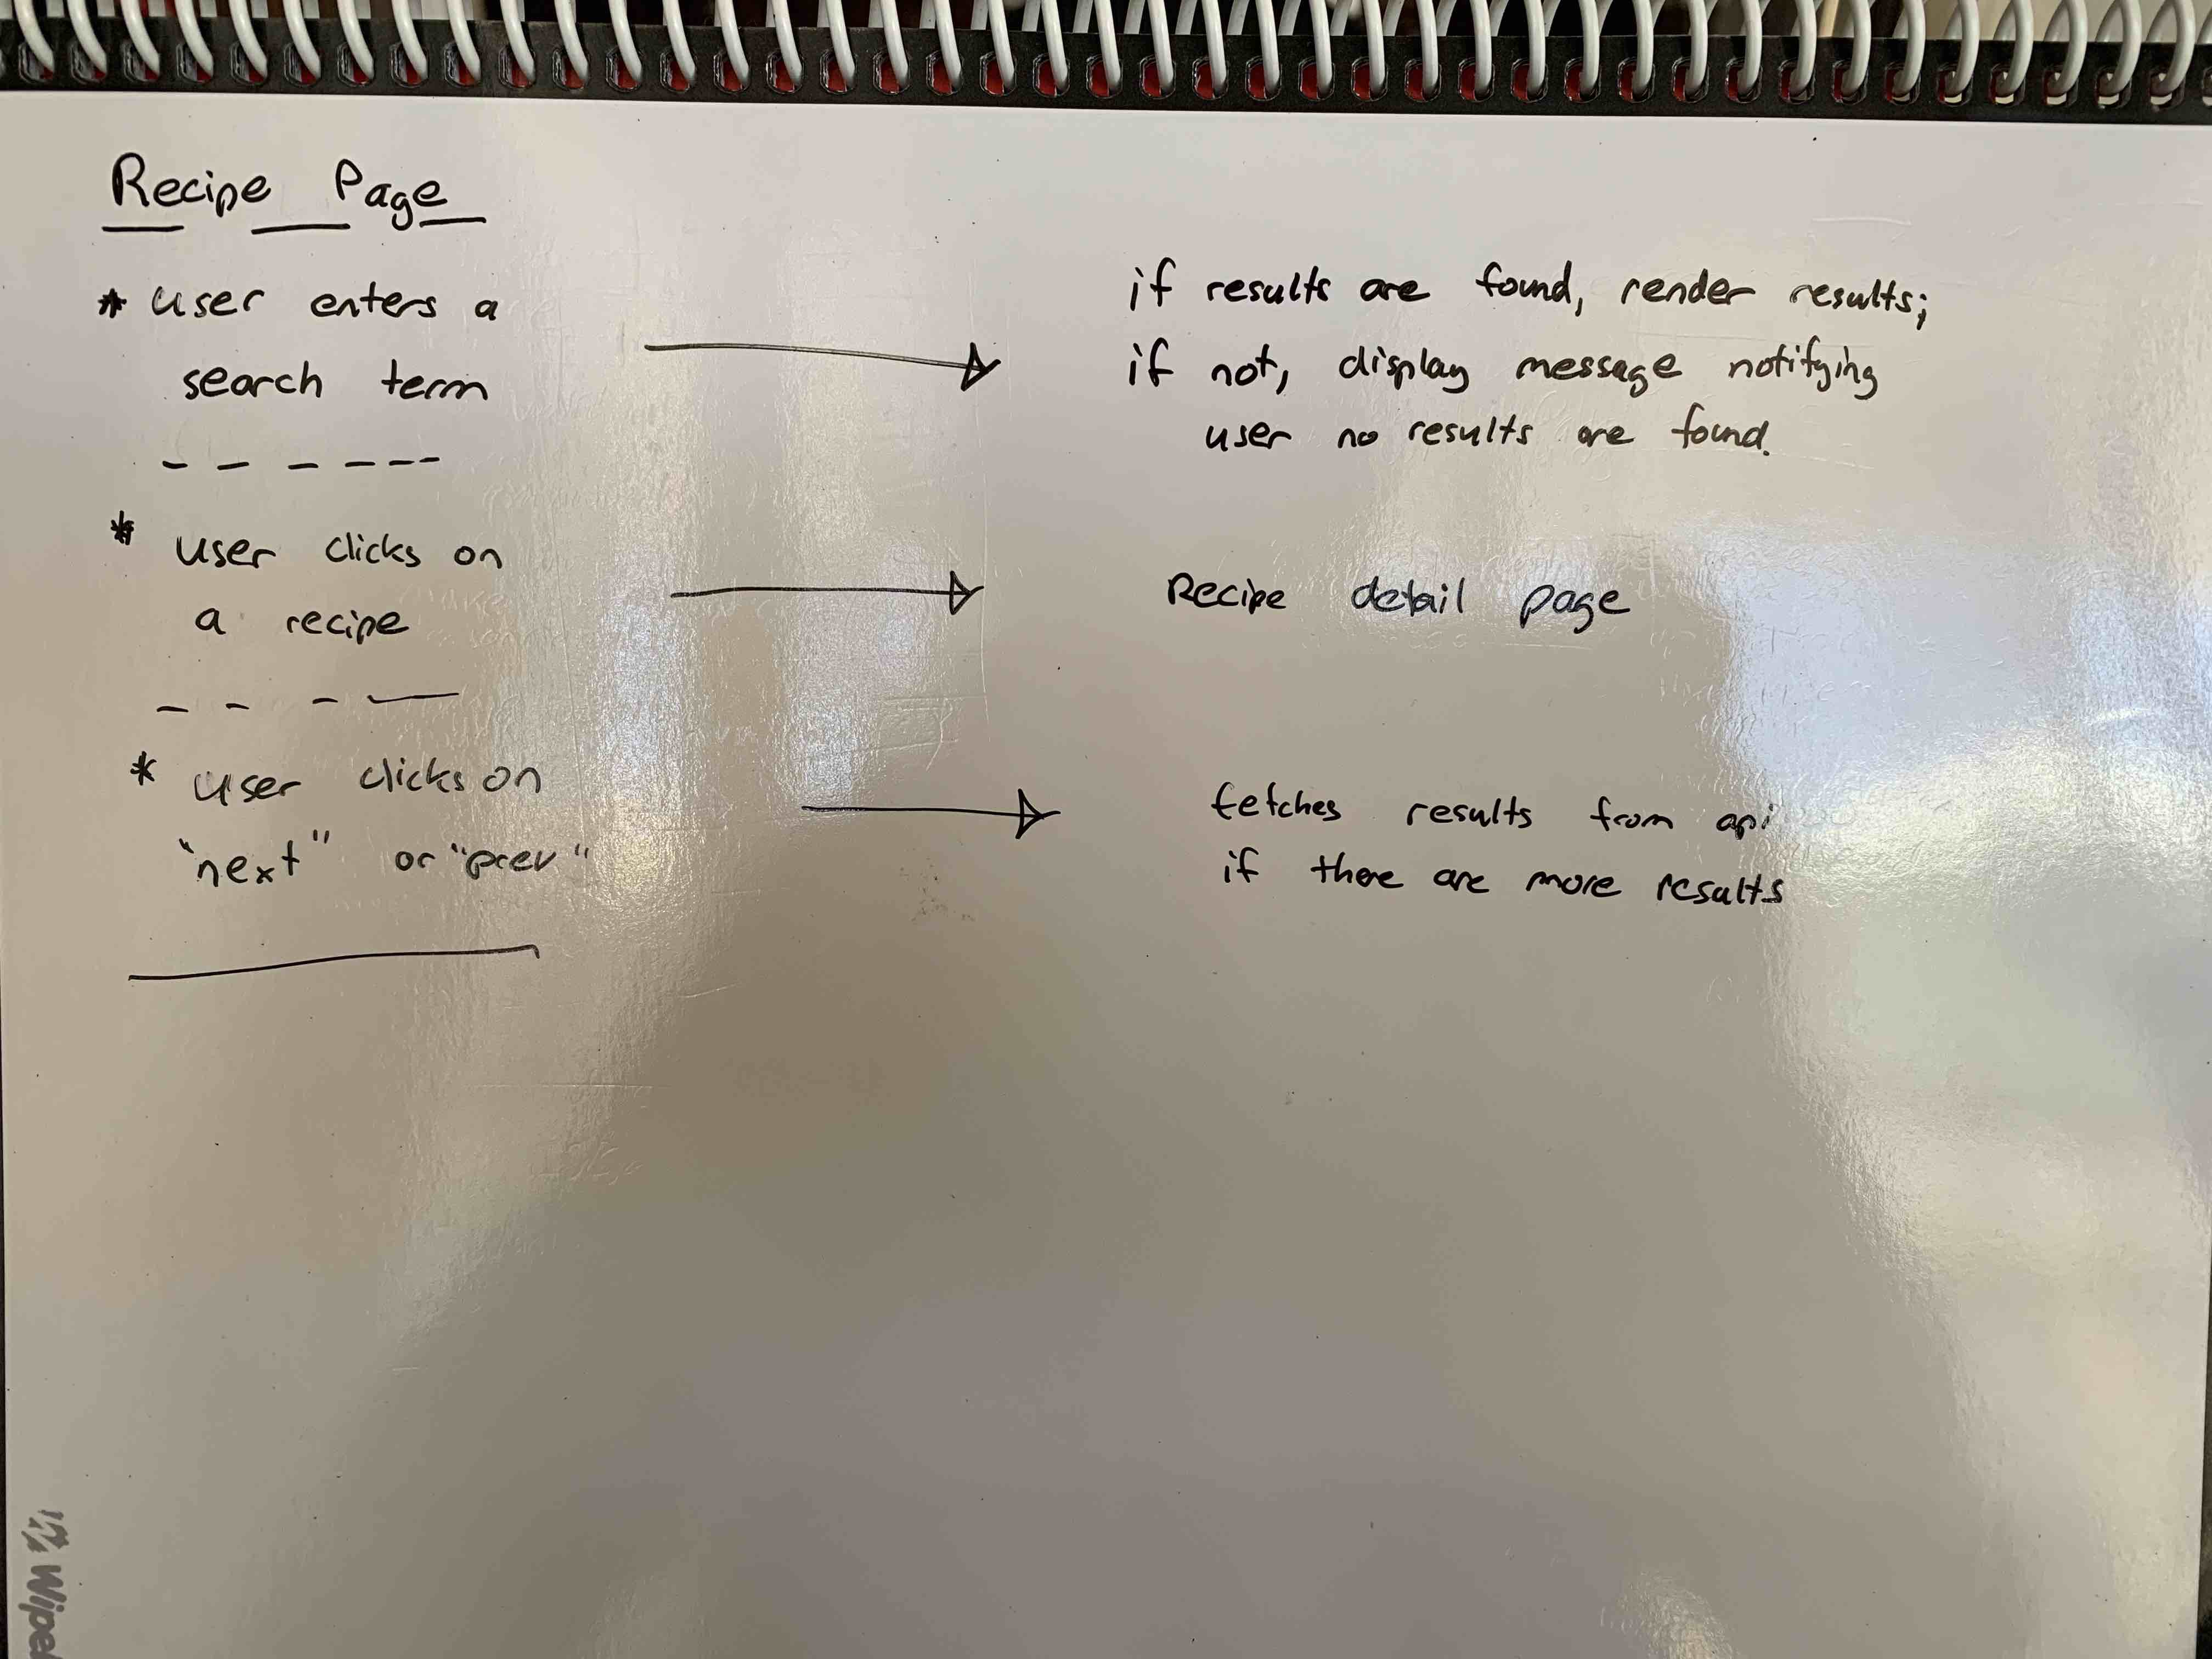 Recipe Page
* user enters a
search term
if results are found, render results;
if not, display message notifying
user no results are found.
* user clicks on
a recipe
Recipe detail page
* user clicks on
"next" or "prev"
fetches results from api
if there are more results